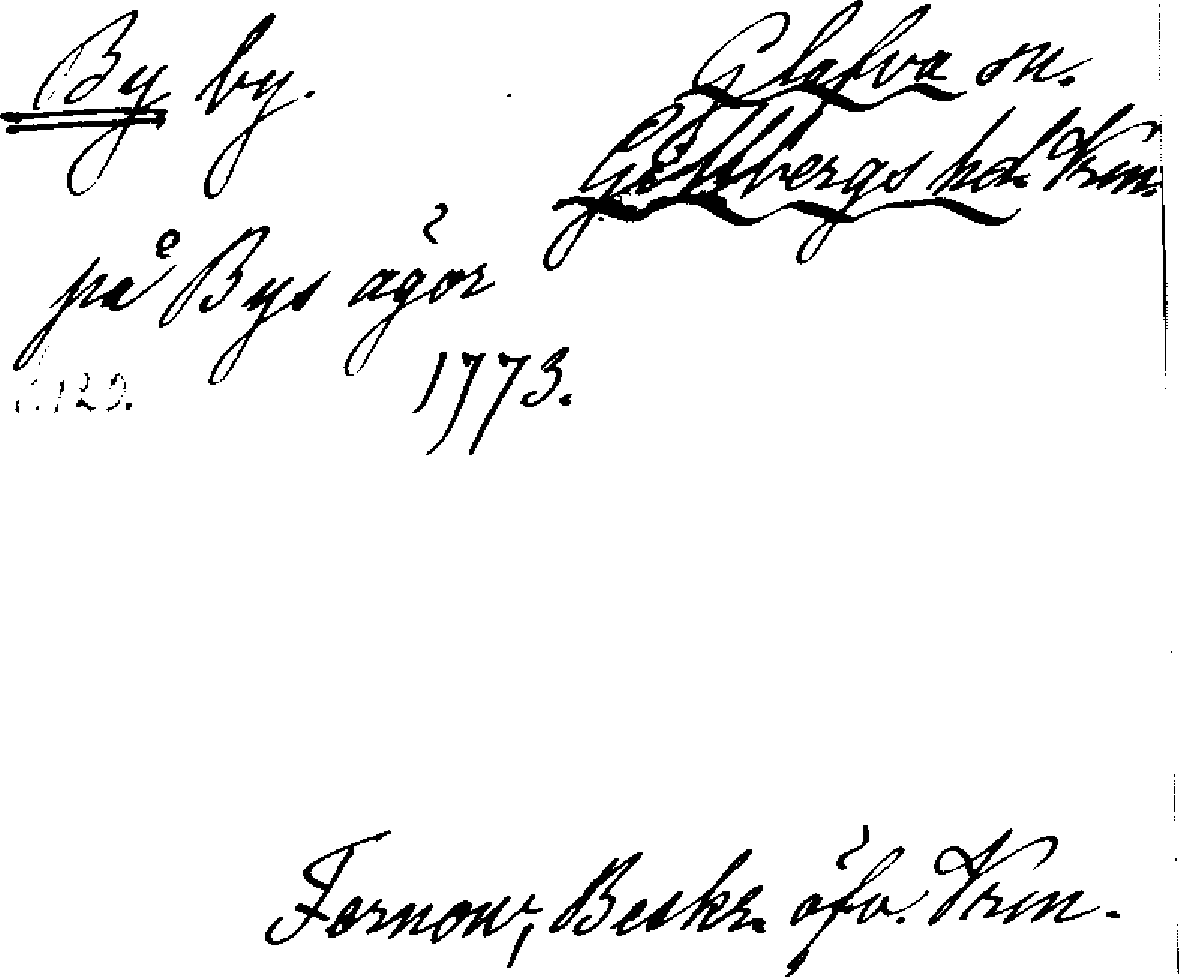 By by.
Glafva sn.
Gillbergs hd. Vrm.
på Bys ägor
1773.
s. 129.
Fernow, Beskr. öfv. Vrm.